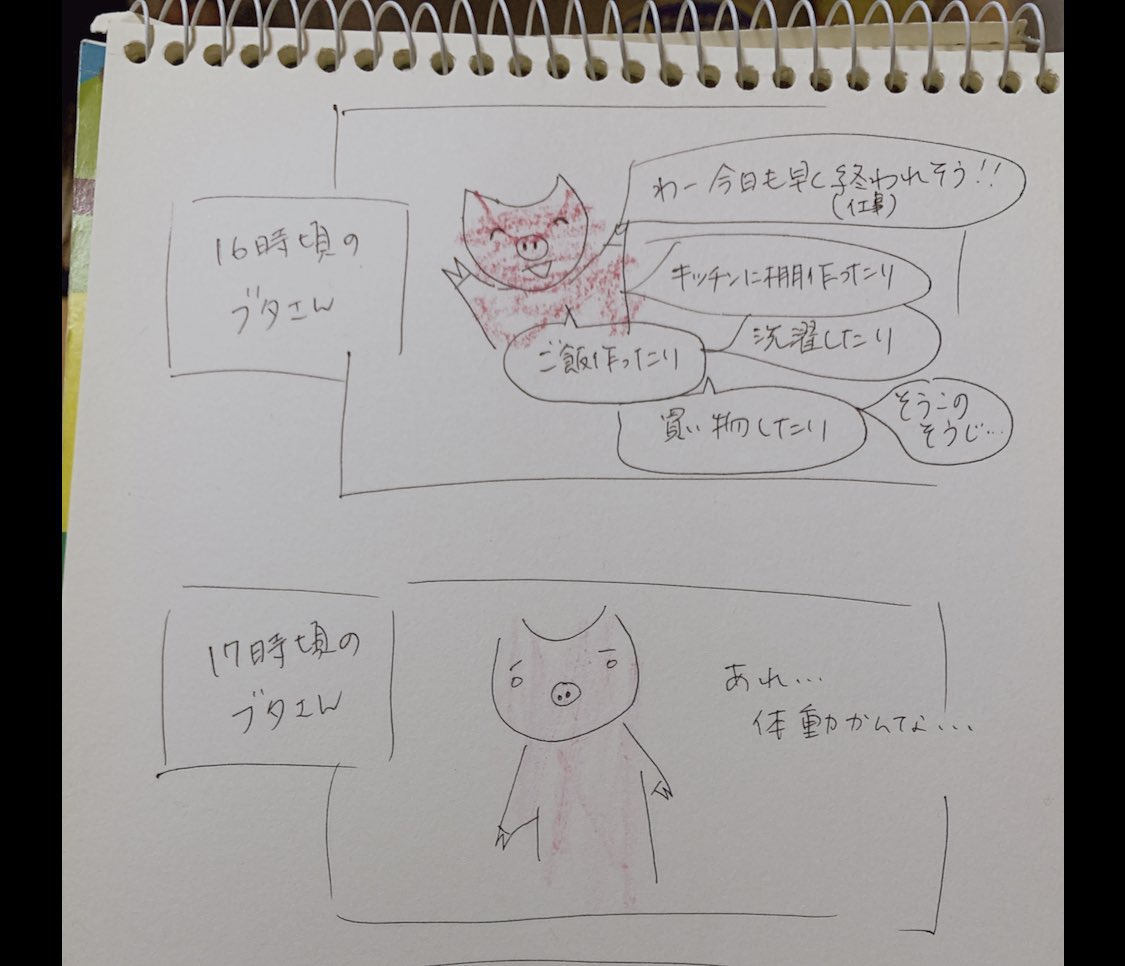 16時頃の
ブタさん
わー今日も早く終われそう!!
(仕事)
キッチンに棚作ったり
洗濯したり
ご飯作ったり
買い物したり
そうこの
そうじ…
17時頃の
ブタさん
あれ…
体動かんてな…